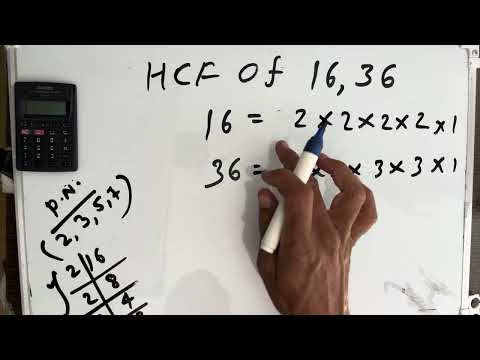 HCF Of 16, 36
16 = 2 × 2 × 2 × 2 × 1
36 = × × 3 × 3 × 1
P.N.
(2, 3, 5, 7)
2 | 16
2 | 8
4